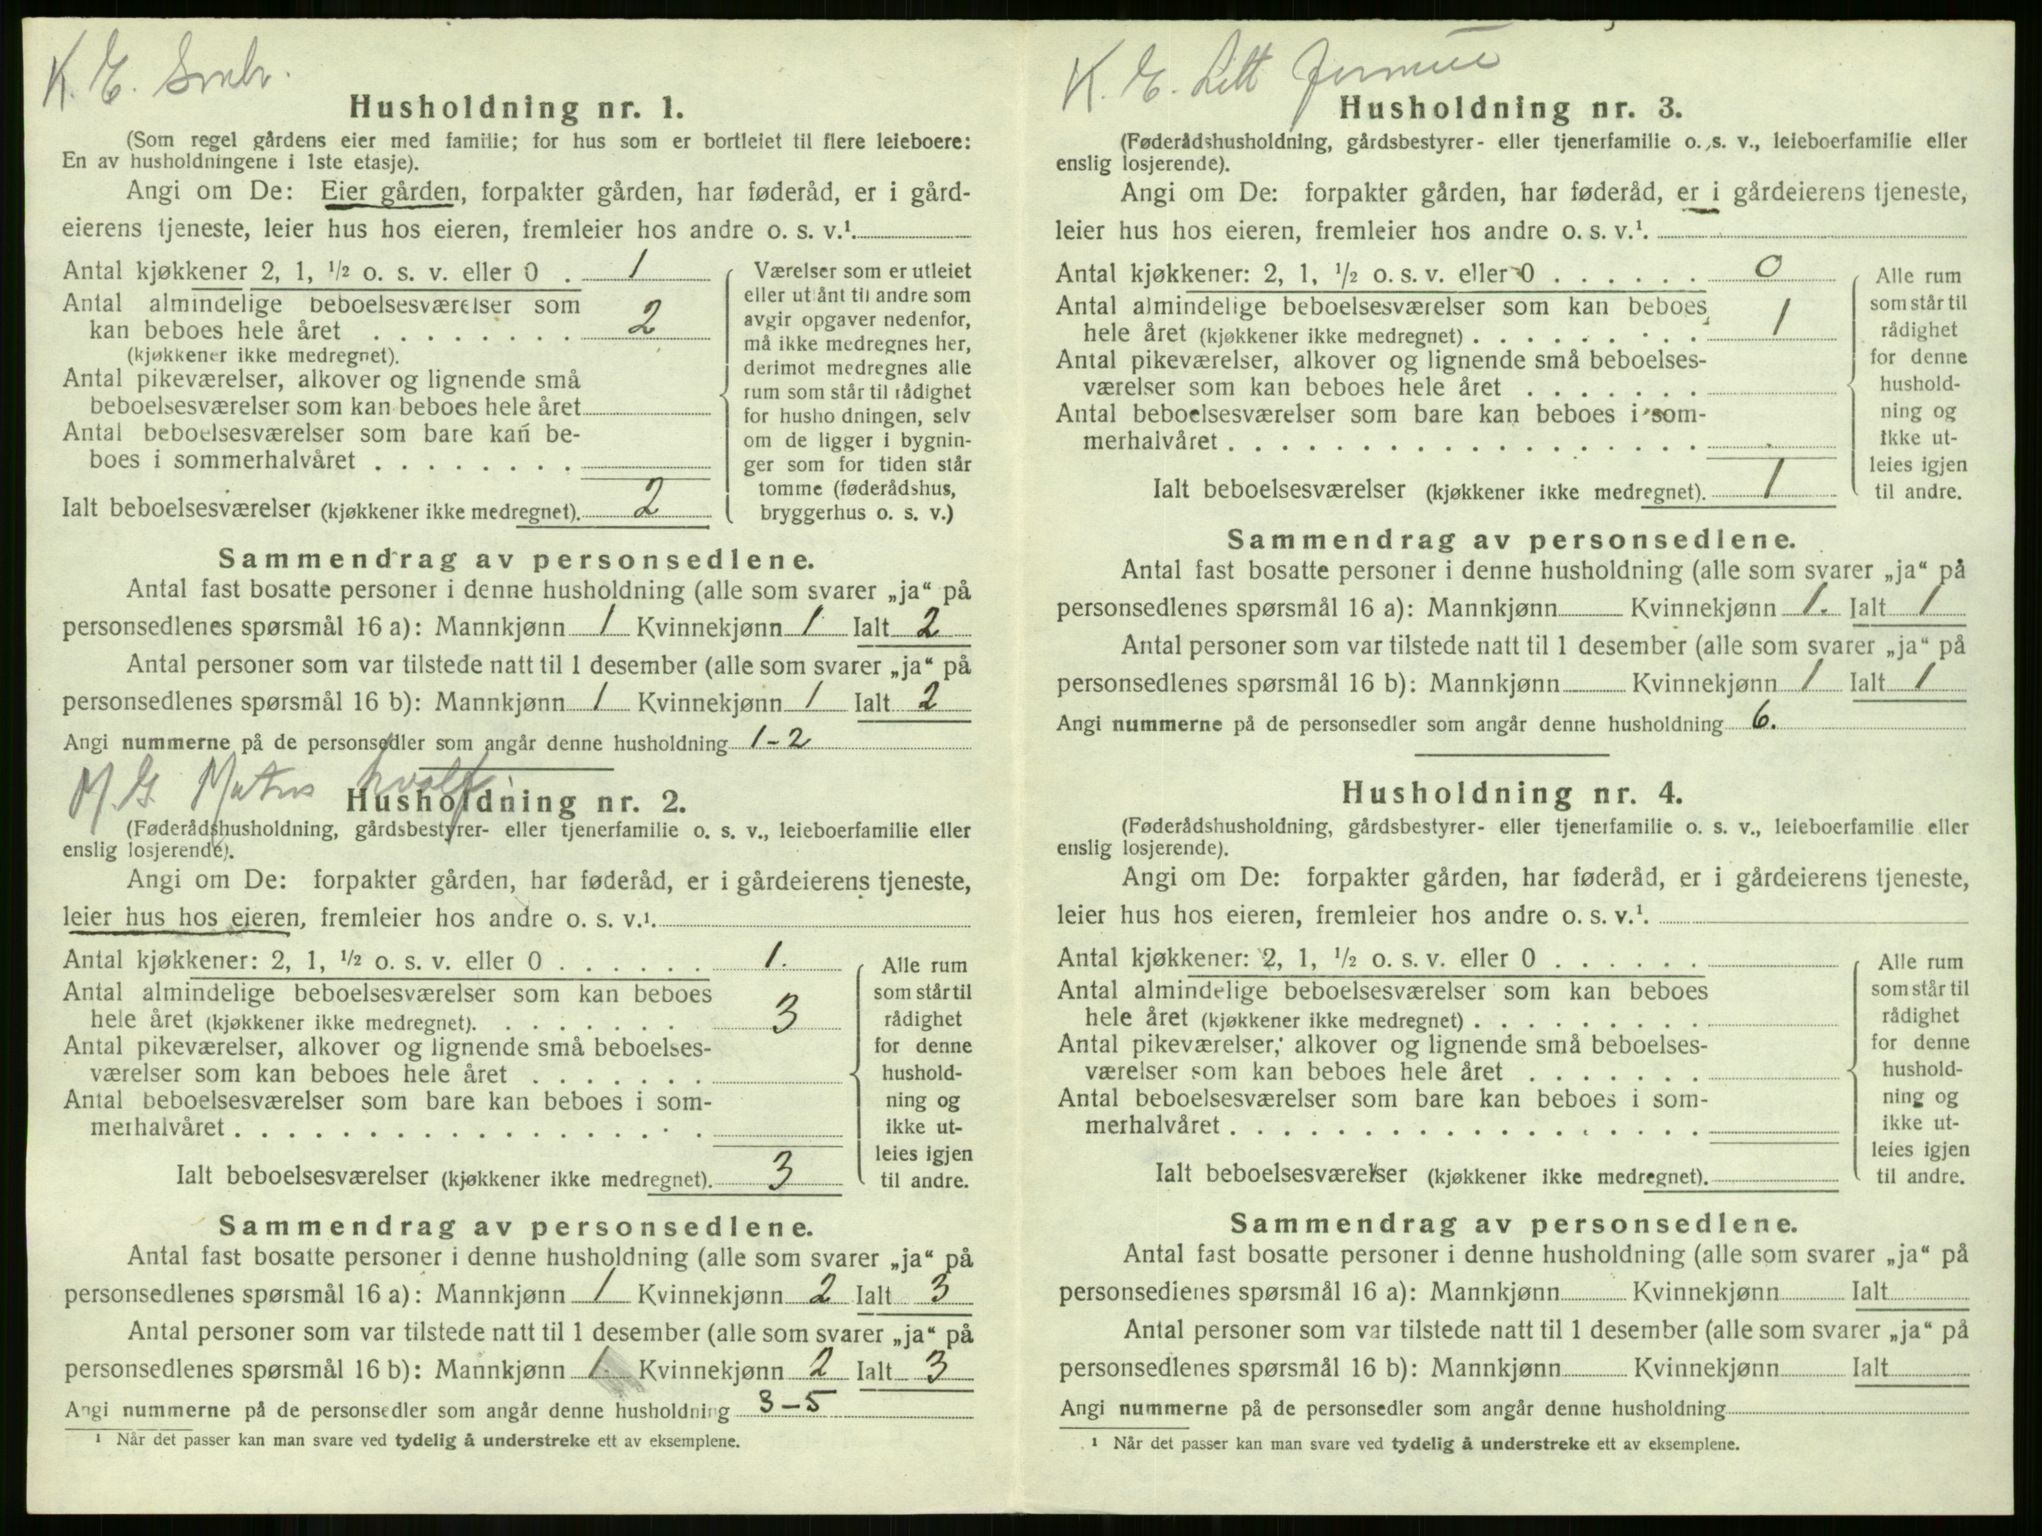 K. E. Smbr.
Husholdning nr. 1.
(Som regel gårdens eier med familie; for hus som er bortleiet til flere leieboere:
En av husholdningene i 1ste etasje).
Angi om De: Eier gården, forpakter gården, har føderåd, er i gård-
eierens tjeneste, leier hus hos eieren, fremleier hos andre o. s. v.¹.
Antal kjøkkener 2, 1, ½ o. s. v. eller 0 . 1
Antal almindelige beboelsesværelser som
kan beboes hele året . . . . . . . . 2
(kjøkkener ikke medregnet).
Antal pikeværelser, alkover og lignende små
beboelsesværelser som kan beboes hele året
Antal beboelsesværelser som bare kan be-
boes i sommerhalvåret . . . . . . . .
Ialt beboelsesværelser (kjøkkener ikke medregnet). 2
Værelser som er utleiet
eller utlånt til andre som
avgir opgaver nedenfor,
må ikke medregnes her,
derimot medregnes alle
rum som står til rådighet
for husho dningen, selv
om de ligger i bygnin-
ger som for tiden står
tomme (føderådshus,
bryggerhus o. s. v.)
Sammendrag av personsedlene.
Antal fast bosatte personer i denne husholdning (alle som svarer „ja“ på
personsedlenes spørsmål 16 a): Mannkjønn 1 Kvinnekjønn 1 Ialt 2
Antal personer som var tilstede natt til 1 desember (alle som svarer „ja“ på
personsedlenes spørsmål 16 b): Mannkjønn 1 Kvinnekjønn 1 Ialt 2
Angi nummerne på de personsedler som angår denne husholdning 1-2
M. G.
Husholdning nr. 2.
(Føderådshusholdning, gårdsbestyrer- eller tjenerfamilie o. s. v., leieboerfamilie eller
enslig losjerende).
Angi om De: forpakter gården, har føderåd, er i gårdeierens tjeneste,
leier hus hos eieren, fremleier hos andre o. s. v.¹.
Antal kjøkkener: 2, 1, ½ o. s. v. eller 0 . . . . . . 1.
Antal almindelige beboelsesværelser som kan beboes
hele året (kjøkkener ikke medregnet). . . . . . . . 3
Antal pikeværelser, alkover og lignende små beboelses-
værelser som kan beboes hele året . . . . . . .
Antal beboelsesværelser som bare kan beboes i som-
merhalvåret . . . . . . . . . . . . . . . . . .
Ialt beboelsesværelser (kjøkkener ikke medregnet). 3
Alle rum
som står til
rådighet
for denne
hushold-
ning og
ikke ut-
leies igjen
til andre.
Sammendrag av personsedlene.
Antal fast bosatte personer i denne husholdning (alle som svarer „ja“ på
personsedlenes spørsmål 16 a): Mannkjønn 1 Kvinnekjønn 2 Ialt 3
Antal personer som var tilstede natt til 1 desember (alle som svarer „ja“ på
personsedlenes spørsmål 16 b): Mannkjønn 1. Kvinnekjønn 2 Ialt 3
Angi nummerne på de personsedler som angår denne husholdning 3-5
¹ Når det passer kan man svare ved tydelig å understreke ett av eksemplene.
K. E. Lett
Husholdning nr. 3.
(Føderådshusholdning, gårdsbestyrer- eller tjenerfamilie o. s. v., leieboerfamilie eller
enslig losjerende).
Angi om De: forpakter gården, har føderåd, er i gårdeierens tjeneste,
leier hus hos eieren, fremleier hos andre o. s. v.¹.
Antal kjøkkener: 2, 1, ½ o. s. v. eller 0 . . . . . . 0
Antal almindelige beboelsesværelser som kan beboes
hele året (kjøkkener ikke medregnet) . . . . . . . . . 1
Antal pikeværelser, alkover og lignende små beboelses-
værelser som kan beboes hele året . . . . . . .
Antal beboelsesværelser som bare kan beboes i som-
merhalvåret . . . . . . . . . . . . . . . . . .
Ialt beboelsesværelser (kjøkkener ikke medregnet). 1
Alle rum
som står til
rådighet
for denne
hushold-
ning og
ikke ut-
leies igjen
til andre.
Sammendrag av personsedlene.
Antal fast bosatte personer i denne husholdning (alle som svarer „ja“ på
personsedlenes spørsmål 16 a): Mannkjønn Kvinnekjønn 1. Ialt 1
Antal personer som var tilstede natt til 1 desember (alle som svarer „ja“ på
personsedlenes spørsmål 16 b): Mannkjønn Kvinnekjønn 1 Ialt 1
Angi nummerne på de personsedler som angår denne husholdning 6.
Husholdning nr. 4.
(Føderådshusholdning, gårdsbestyrer- eller tjenerfamilie o. s. v., leieboerfamilie eller
enslig losjerende).
Angi om De: forpakter gården, har føderåd, er i gårdeierens tjeneste,
leier hus hos eieren, fremleier hos andre o. s. v.¹.
Antal kjøkkener: 2, 1, ½ o. s. v. eller 0 . . . . . .
Antal almindelige beboelsesværelser som kan beboes
hele året (kjøkkener ikke medregnet) . . . . . . . . .
Antal pikeværelser, alkover og lignende små beboelses-
værelser som kan beboes hele året . . . . . . .
Antal beboelsesværelser som bare kan beboes i som-
merhalvåret . . . . . . . . . . . . . . . . . .
Ialt beboelsesværelser (kjøkkener ikke medregnet).
Alle rum
som står til
rådighet
for denne
hushold-
ning og
ikke ut-
leies igjen
til andre.
Sammendrag av personsedlene.
Antal fast bosatte personer i denne husholdning (alle som svarer „ja“ på
personsedlenes spørsmål 16 a): Mannkjønn Kvinnekjønn Ialt
Antal personer som var tilstede natt til 1 desember (alle som svarer „ja“ på
personsedlenes spørsmål 16 b): Mannkjønn Kvinnekjønn Ialt
Angi nummerne på de personsedler som angår denne husholdning
¹ Når det passer kan man svare ved tydelig å understreke ett av eksemplene.